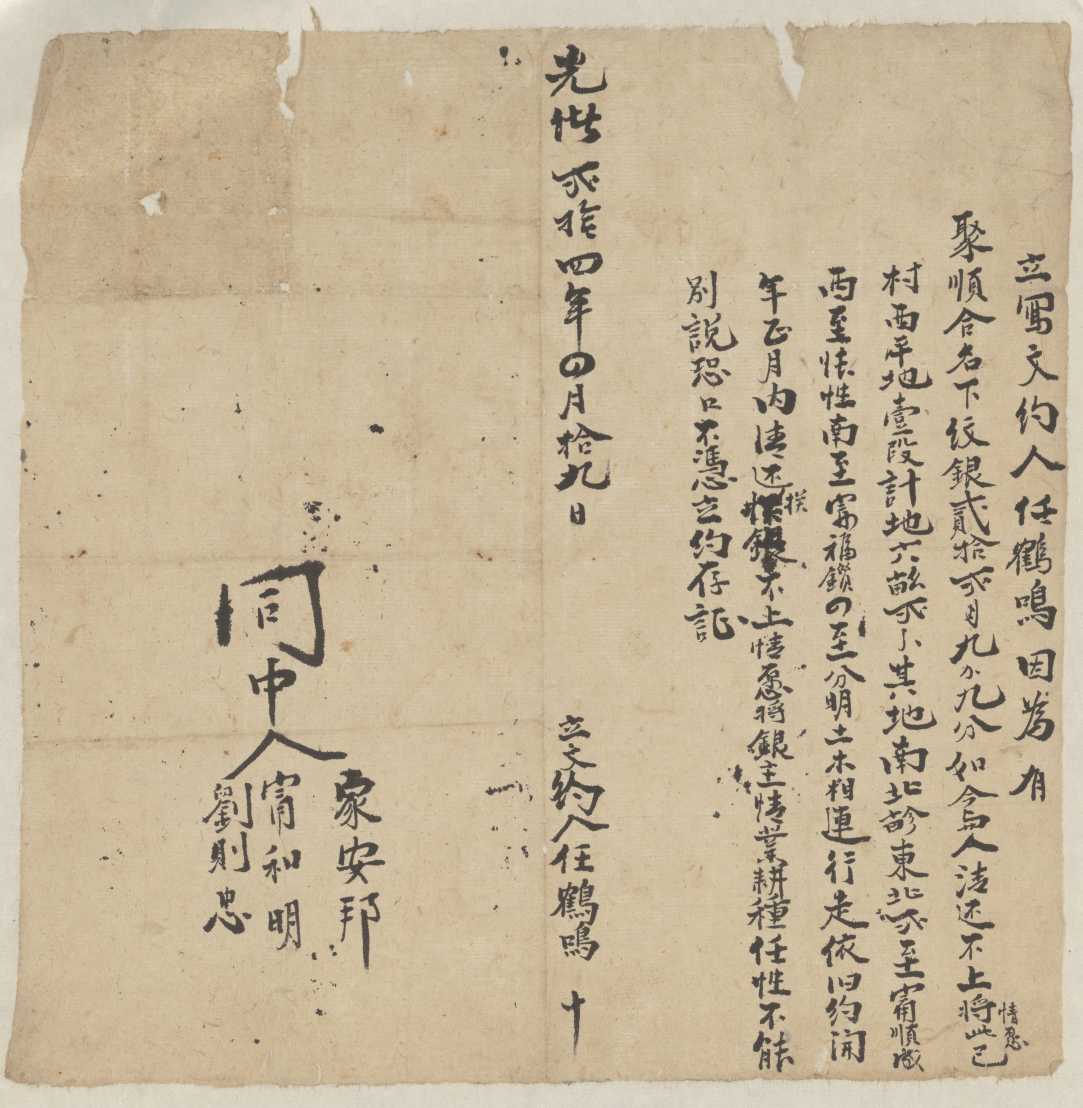 立寫文約人任鶴鳴因為有
聚順合名下紋銀貳拾弍月九分九分如今与人清还不上情愿將此己
村西平地壹段計地六畝弍分其地南北畛東北弍至甯順成
西至性南至甯福鎖四至分明土木相連行走依旧約開
年正月内清还銀不上情愿將銀主情業耕種任性不能
別說恐口不憑立約存証
光緒弍拾四年四月拾九日
立文約人任鶴鳴 十
同中人
家安邦
甯和明
劉則忠